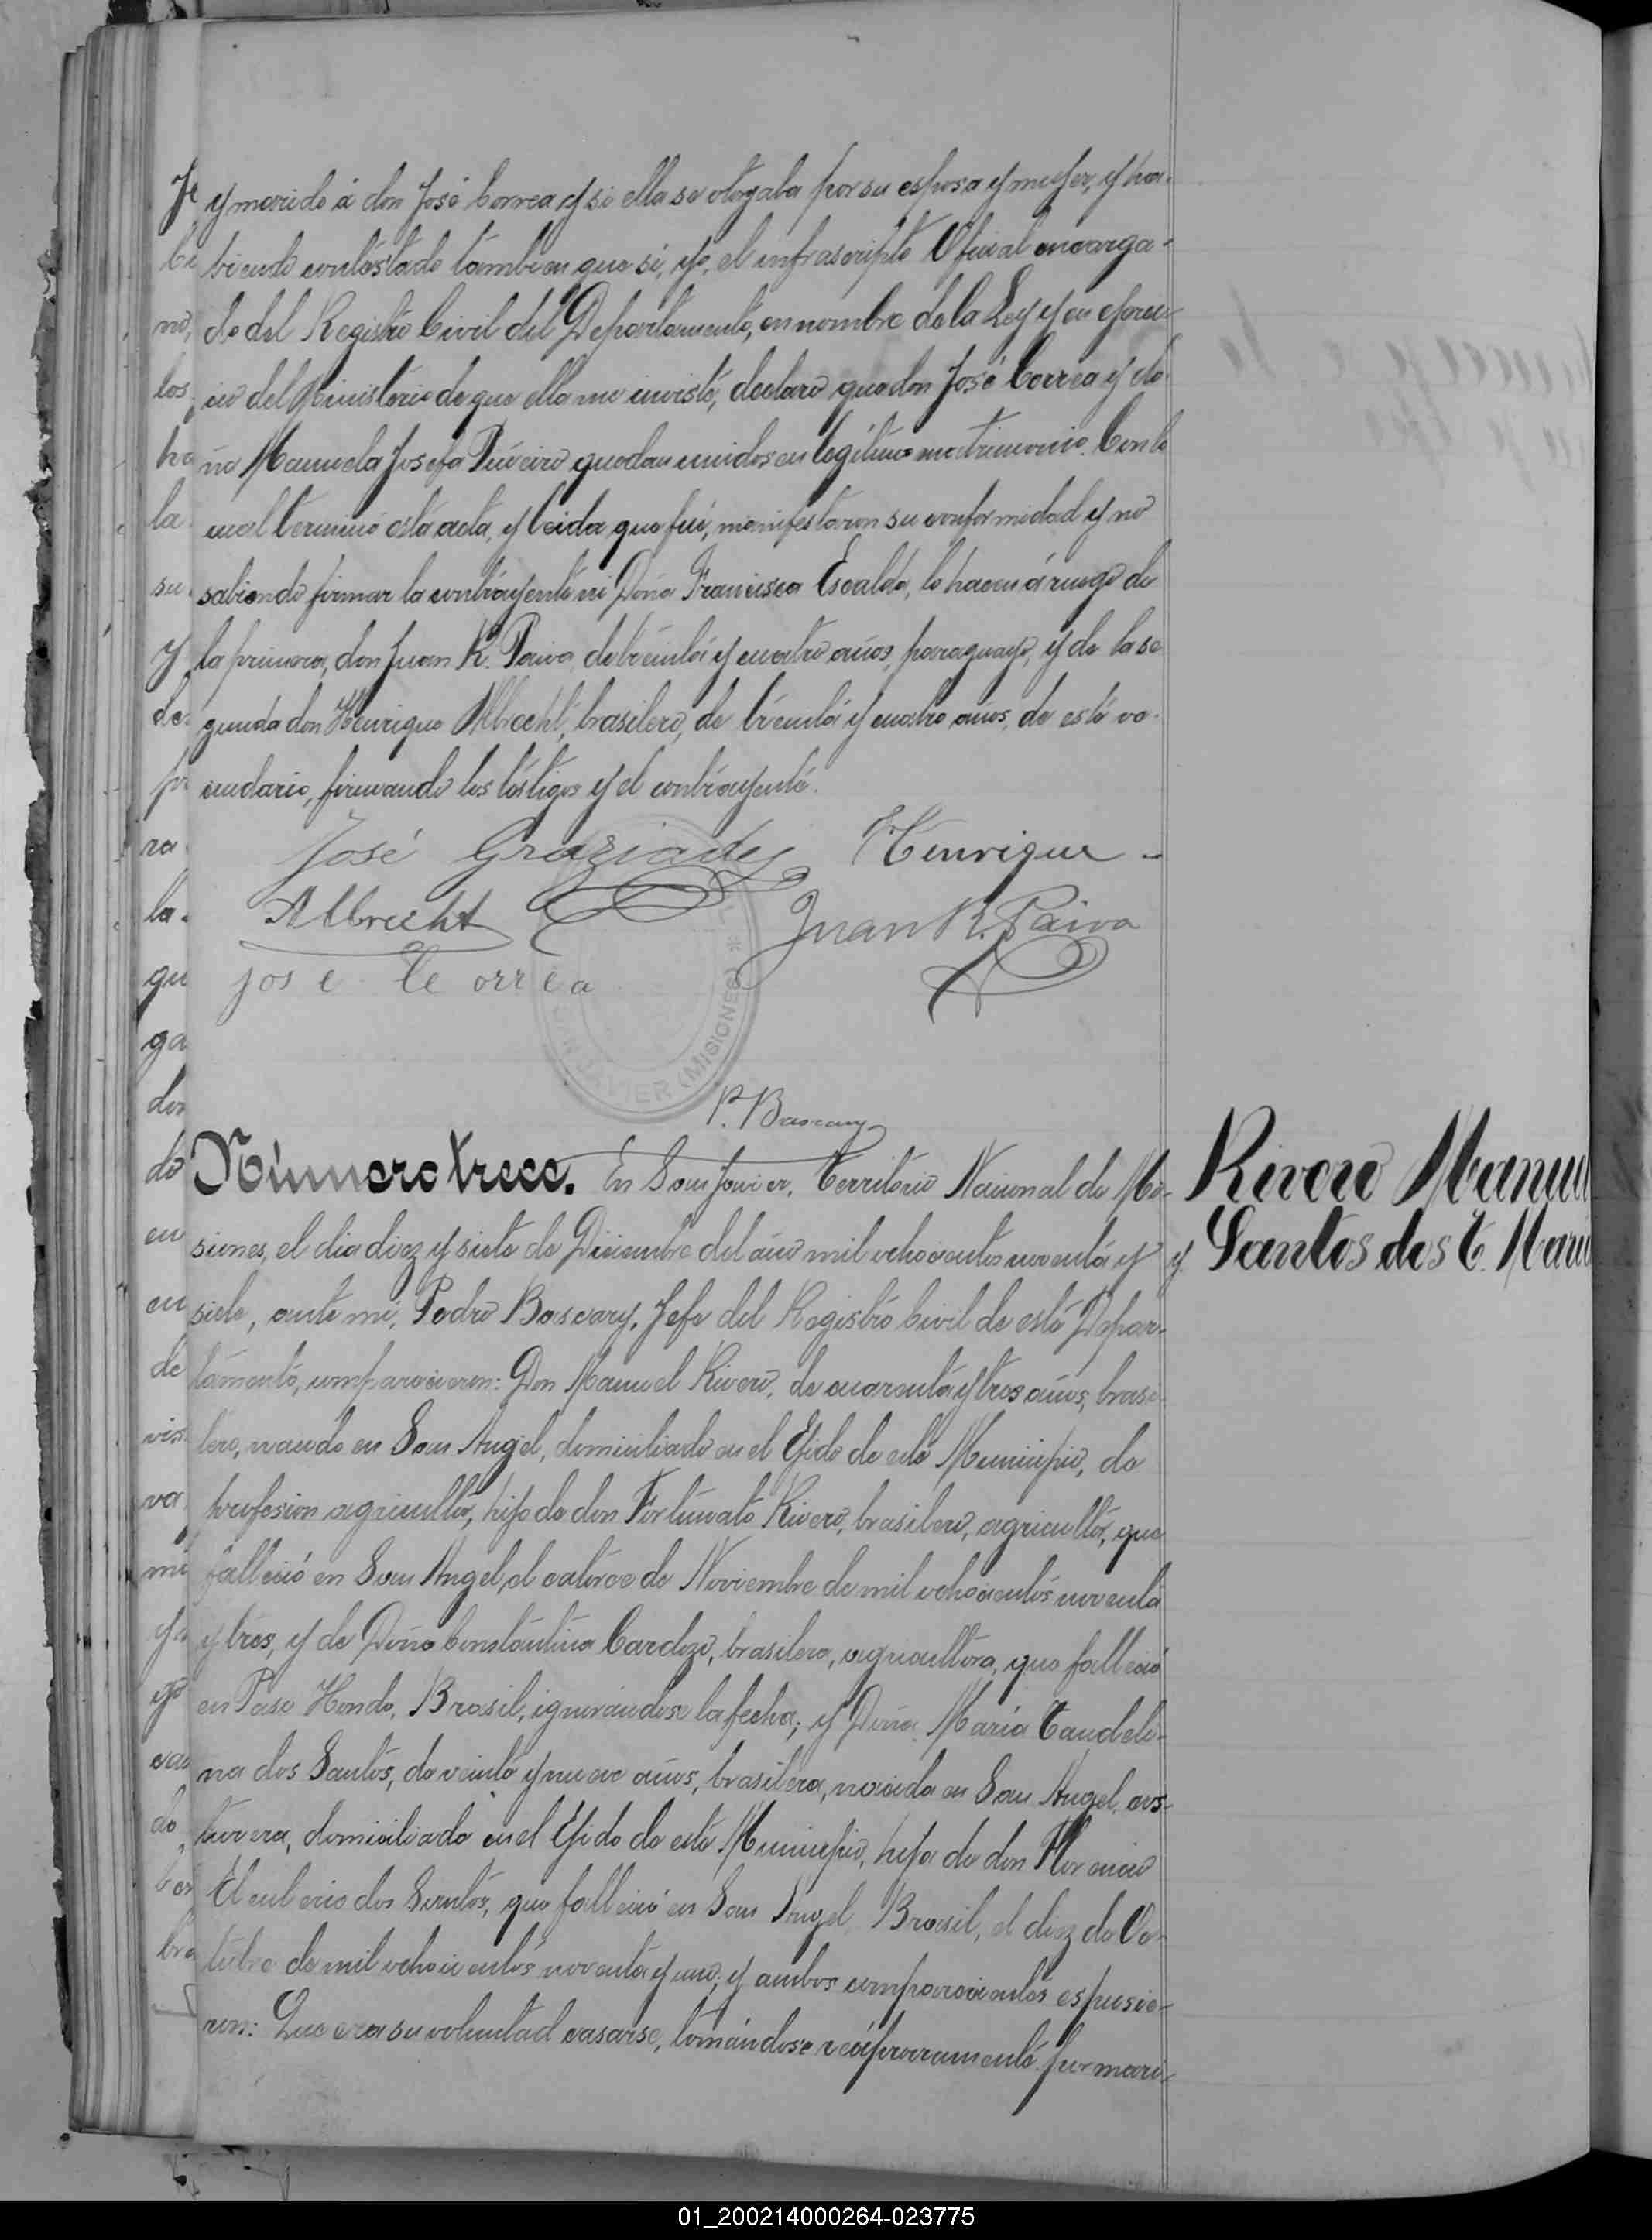 y marido á don José Correa y si ella se otorgaba por su esposa y mujer, y ha-
biendo contestado tambien que si, yo, el infrascripto Oficial encarga-
do del Registro Civil del Departamento, en nombre de la Ley y en ejerci-
cio del Ministerio de que ella me inviste, declaro que don José Correa y do-
ña Manuela Josefa Piñeiro quedan unidos en legítimo matrimonio. Con lo
cual terminó esta acta, y leida que fué, manifestaron su conformidad y no
sabiendo firmar la contrayente ni Doña Francisca Escalda, lo hacen á ruego de
la primera, don Juan R. Paiva, de treinta y cuatro años, paraguayo, y de la se
gunda don Henrique Albrecht, brasilero, de treinta y cuatro años, de este ve-
cindario, firmando los testigos y el contrayente.
José Henrique -
Albrecht Juan R. Paiva
jose Correa
JAVIER (MISIONES) *
P. Bascary
Número trece. En San Javier, Territorio Nacional de Mi-
siones, el dia diez y siete de Diciembre del año mil ochocientos noventa y
siete, ante mi, Pedro Bascary, Jefe del Registro Civil de este Depar-
tamento, comparecieron: Don Manuel Rivero, de cuarenta y tres años, brasi-
lero, nacido en San Angel, domiciliado en el Ejido de este Municipio, de
profesion agricultor, hijo de don Fortunato Rivero, brasilero, agricultor, que
falleció en San Angel, el catorce de Noviembre de mil ochocientos noventa
y tres, y de Doña Constantina Cardozo, brasilera, agricultora, que falleció
en Paso Hondo, Brasil, ignorándose la fecha; y Doña Maria Candeli-
na dos Santos, de veinte y nueve años, brasilera, nacida en San Angel, cos-
turera, domiciliada en el Ejido de este Municipio, hija de don Florencio
Eleuterio dos Santos, que falleció en San Angel, Brasil, el diez de Oc-
tubre de mil ochocientos noventa y uno; y ambos comparecientes espusie-
ron: Que era su voluntad casarse, tomándose recíprocamente por mari-
Rivero Manuel
y Santos dos C. Maria
01_200214000264-023775